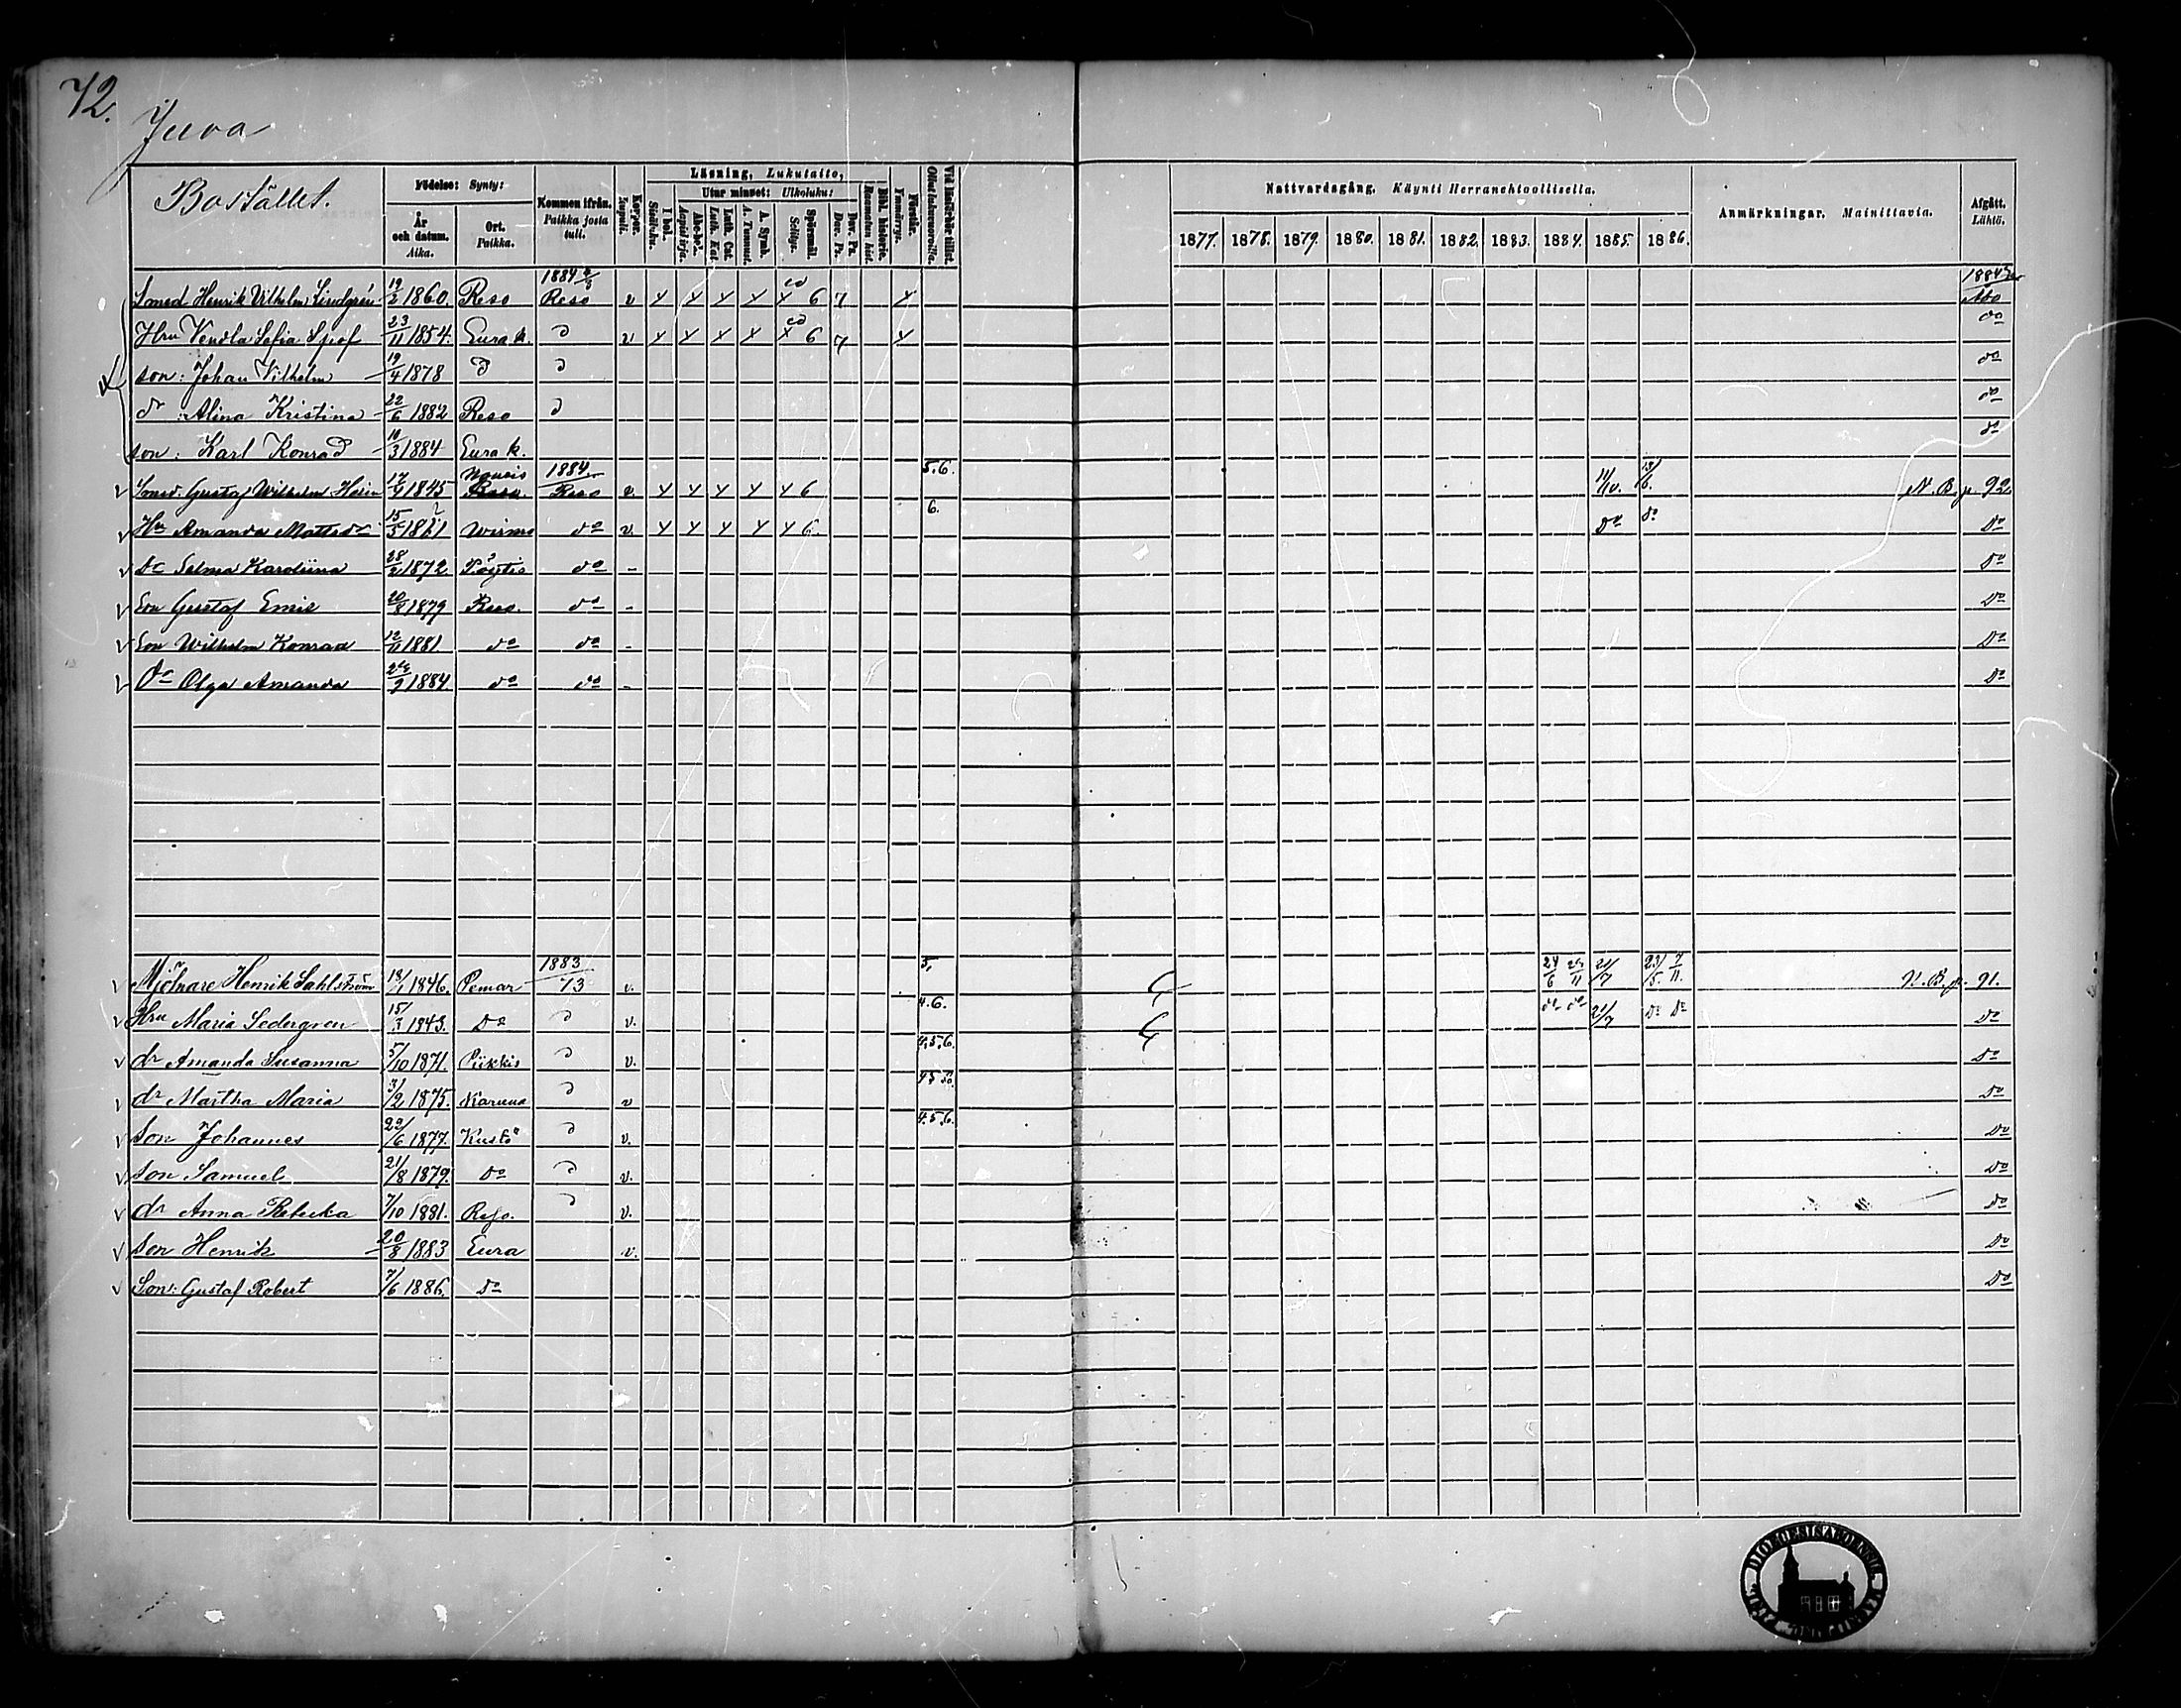 72.
Juva
Bostället.
Födelse: Synty:
År och datum. Aika.
Ort. Paikka.
Kommen ifrån. Paikka josta tuli.
Koppor. Isupuli.
Läsning, Lukutaito,
I bok. Sisäluku.
Utur minnet: Ulkoluku:
Abc-bok. Aapiskirja.
Luth. Cat. Luth. Kat.
A. Symb. A. Tunnust.
Spörsmål. Selitys.
Dav. Ps. Dav. Ps.
Bibl. historie. Raamatun hist.
Förstår. Ymmärrys.
Vid läsförhör tillst. Ollut lukuvuoroilla.
Nattvardsgång. Käynti Herranehtoollisella.
1877. 1878. 1879. 1880. 1881. 1882. 1883. 1884. 1885. 1886.
Anmärkningar. Mainittavia.
Afgått. Lähtö.
Smed Henrik Vilhelm Lindgrén 19/2 1860. Reso 1884 Reso v 6 7 1884 Åbo
Hru Vendla Sofia Spof 23/11 1854. Eura k. v 6 7 do
son: Johan Vilhelm 19/4 1878 do
dr: Alina Kristina 22/6 1882 Reso do
son: Karl Konrad 10/3 1884 Eura k. do
Smed. Gustaf Wilhelm 17/9 1845 Nousis 1884 Reso v. 6 5.6. 11/10. 13/6. N. B. p. 92
Hu Amanda Mattsdr 15/5 1861 Wirmo do v. 6. 6. Do do Do
Dr Selma Karoliina 28/2 1872. Pöytis do - Do
Son Gustaf Emil 20/8 1879 Reso. do - Do
Son Wilhelm Konrad 12/11 1881 do do - Do
Dr Olga Amanda 1884 do do - Do
Mjölnare Henrik Sahlström 18/1 1846. Pemar 1883 73 v. 5, 24/6 21/7 23/5. 7/11. N. B. p. 91.
Hru Maria Sedergren 15/3 1843. Do v. 4.6. do do 21/7 Do Do Do
dr Amanda Susanna 5/10 1871. Piikkis v. 4.5.6. Do
dr Martha Maria 3/2 1875. Karuna v 4 5 6. Do
Son Johannes 22/6 1877. Kustö v. 4.5.6. Do
son Samuel 21/8 1879. Do v. Do
dr Anna Rebecka 7/10 1881. Reso. v. Do
Son Henrik 20/8 1883 Eura v. Do
Son: Gustaf Robert 7/6 1886. Do Do